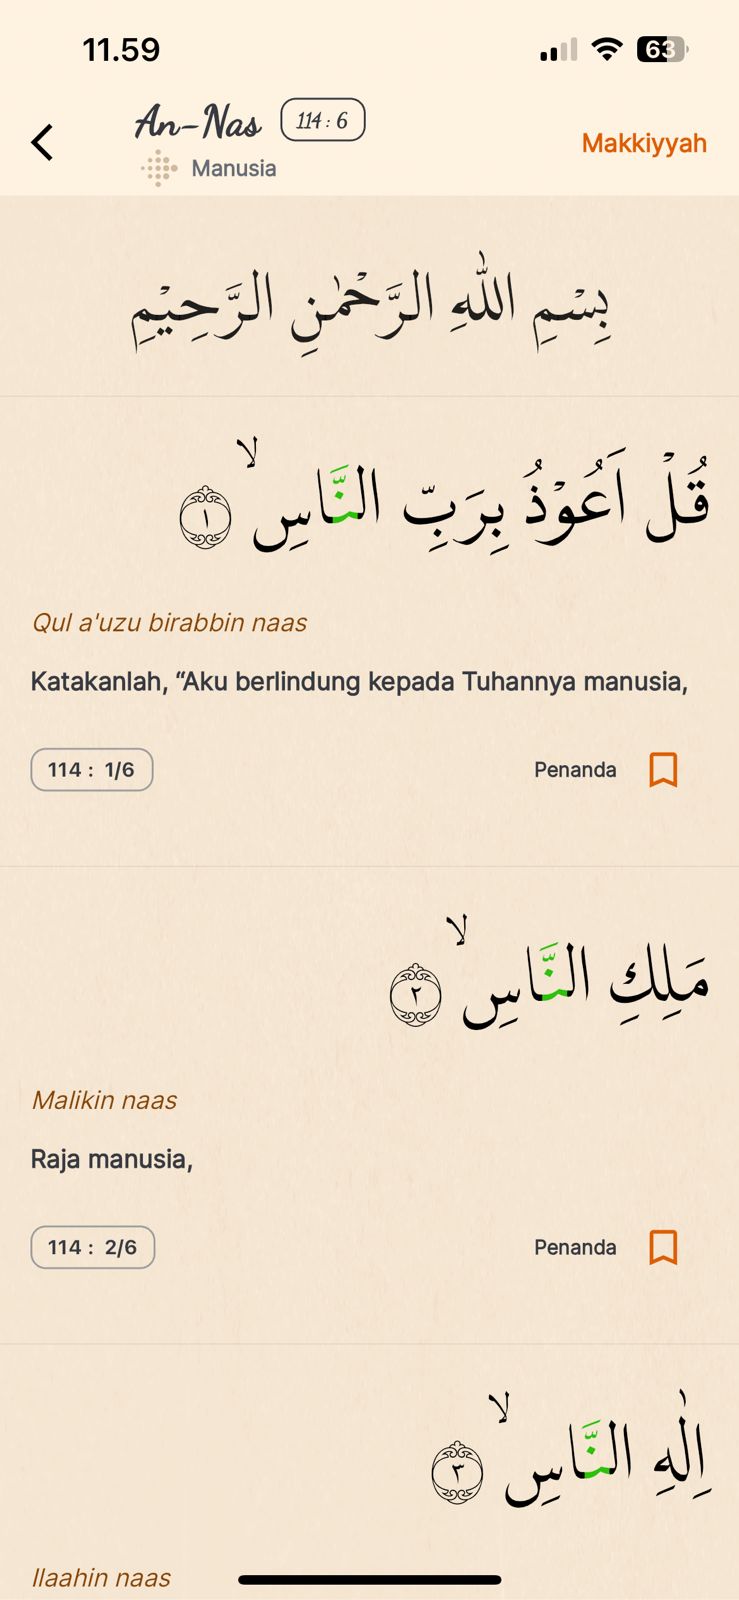 11.59
63
An-Nas 114 : 6
Manusia
Makkiyyah
بِسْمِ اللّٰهِ الرَّحْمٰنِ الرَّحِيْمِ
قُلْ اَعُوْذُ بِرَبِّ النَّاسِۙ ١
Qul a'uzu birabbin naas
Katakanlah, “Aku berlindung kepada Tuhannya manusia,
114 : 1/6 Penanda
مَلِكِ النَّاسِۙ ٢
Malikin naas
Raja manusia,
114 : 2/6 Penanda
اِلٰهِ النَّاسِۙ ٣
Ilaahin naas